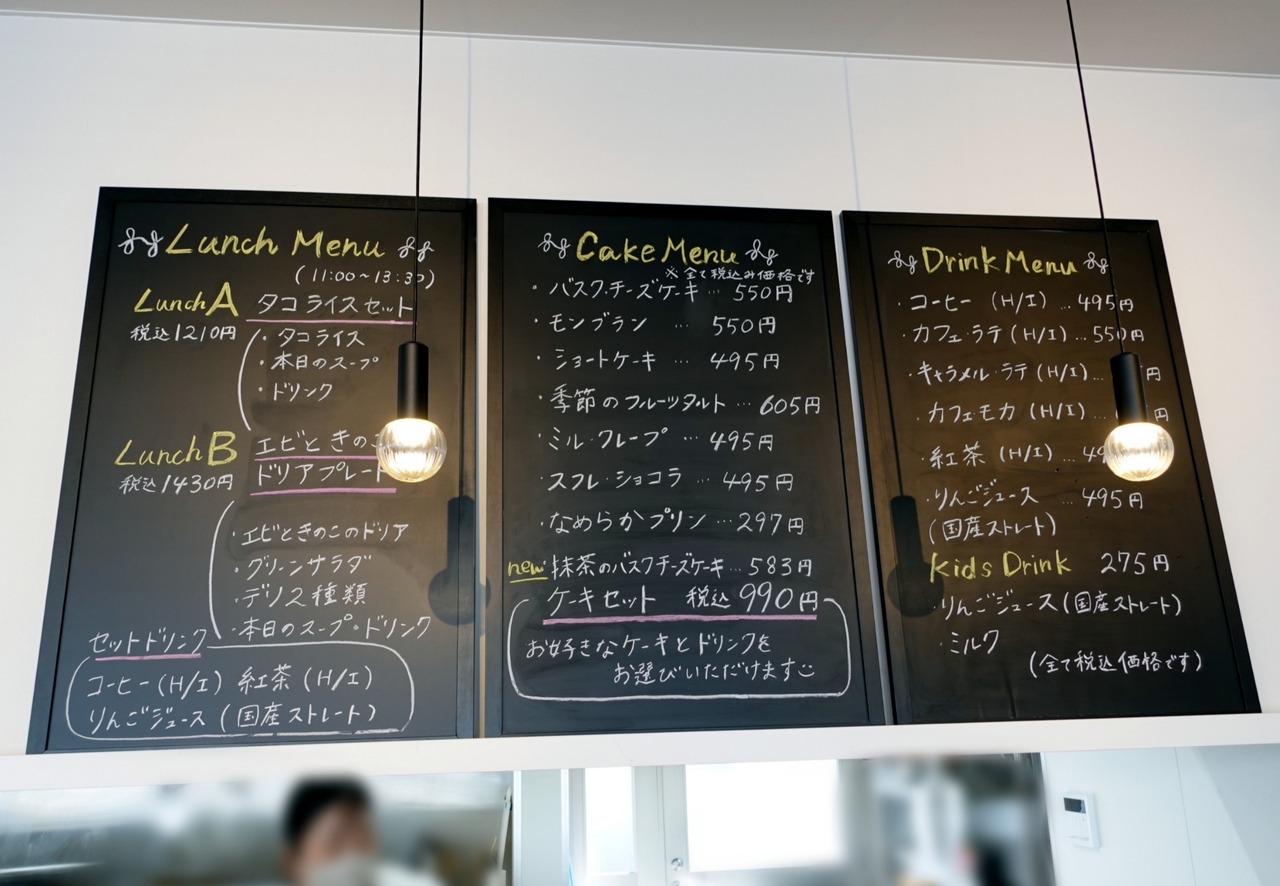 Lunch Menu
(11:00〜13:30)
Lunch A タコライスセット
税込1210円
・タコライス
・本日のスープ
・ドリンク
Lunch B エビときのこ
税込1430円 ドリアプレート
・エビときのこのドリア
・グリーンサラダ
・デリ2種類
・本日のスープ・ドリンク
セットドリンク
コーヒー(H/I) 紅茶(H/I)
りんごジュース(国産ストレート)
Cake Menu
※全て税込み価格です
・バスクチーズケーキ…550円
・モンブラン…550円
・ショートケーキ…495円
・季節のフルーツタルト…605円
・ミル・クレープ…495円
・スフレ・ショコラ…495円
・なめらかプリン…297円
new・抹茶のバスクチーズケーキ…583円
ケーキセット 税込990円
お好きなケーキとドリンクを
お選びいただけます
Drink Menu
・コーヒー(H/I)…495円
・カフェ・ラテ(H/I)…550円
・キャラメル・ラテ(H/I)… 円
・カフェモカ(H/I)… 円
・紅茶(H/I)…
・りんごジュース…495円
(国産ストレート)
Kids Drink 275円
・りんごジュース(国産ストレート)
・ミルク
(全て税込価格です)